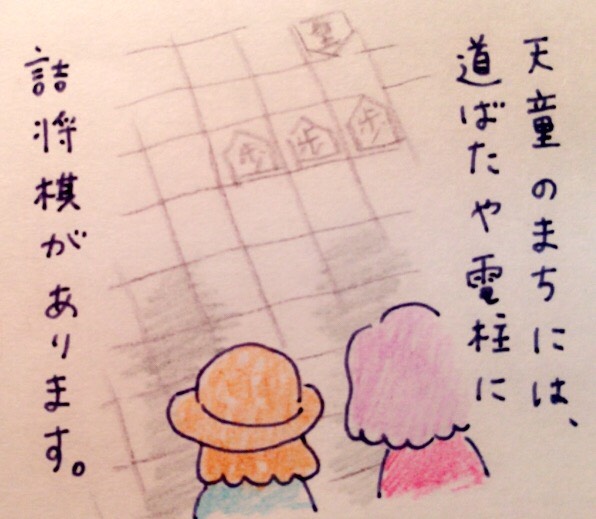 天童のまちには、
道ばたや電柱に
歩
歩
歩
詰将棋があります。